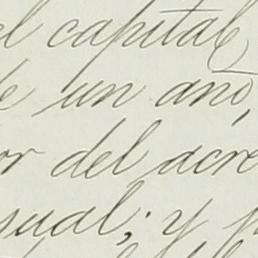 el capital
de un año,
or del acre
sual; y p